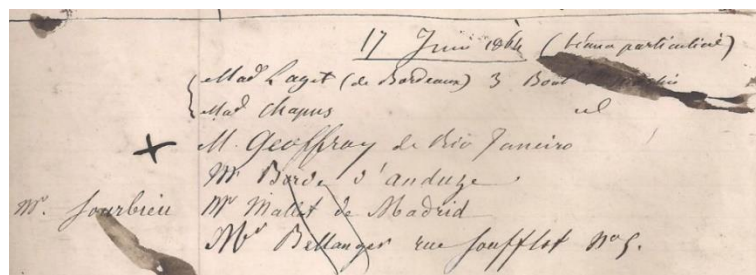 17 Juin 1864 (séance particulière)
Mad. Laget (de Bordeaux) 3 Boul
Mad. Chapus id
M. Geoffroy de Rio Janeiro
Mr Borde d'anduze
Mr. Sourbieu Mr Maliot de Madrid
Mr Bellanger rue Soufflot no 5.